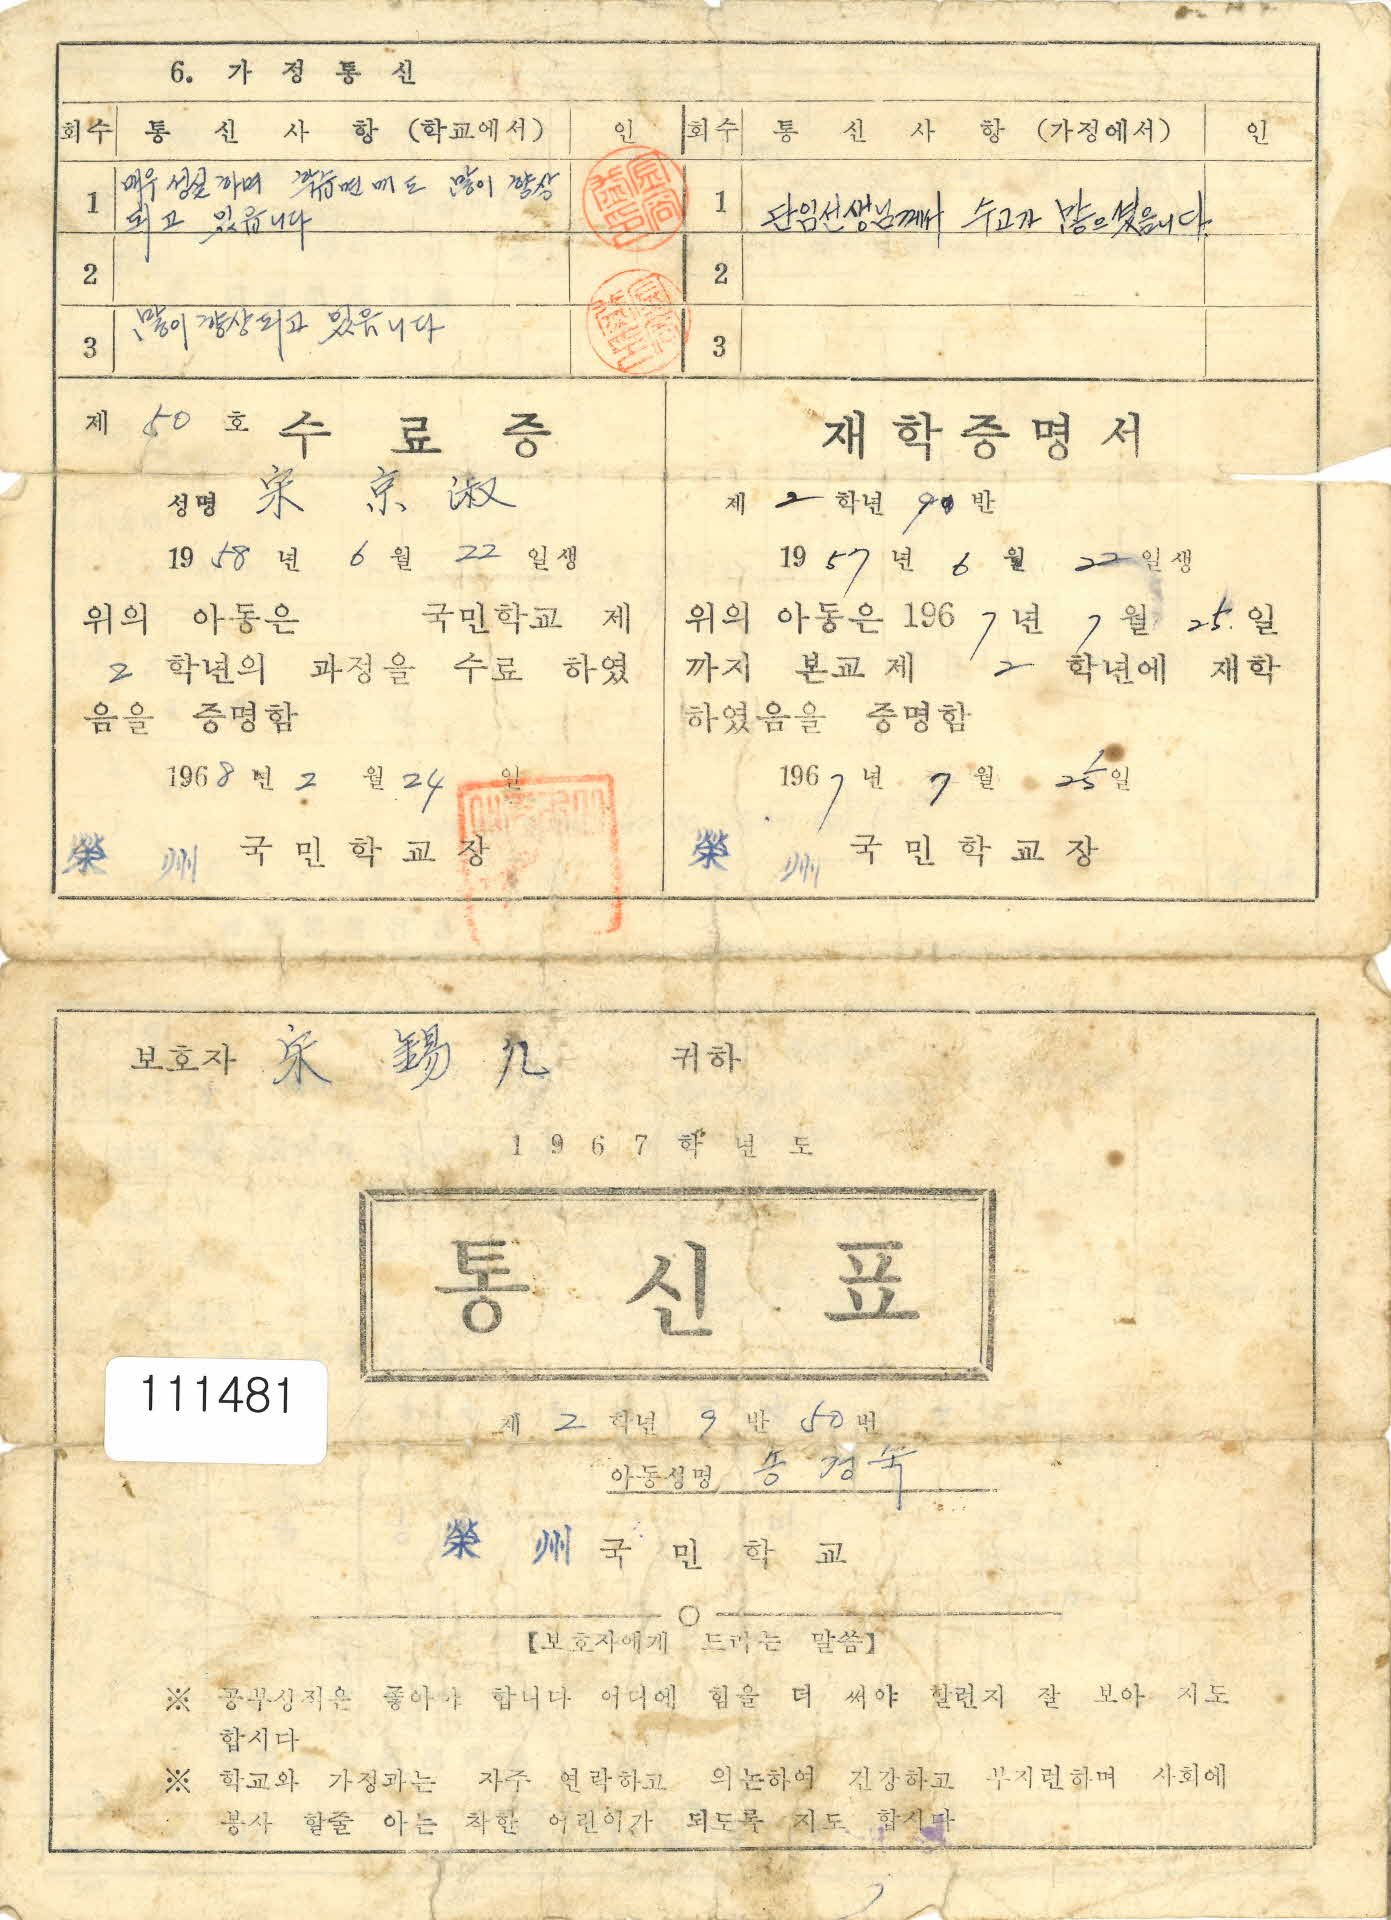 6. 가정통신
회수 통신사항 (학교에서) 인 회수 통신사항 (가정에서) 인
1 매우 성실하며 학습면에도 많이 향상
되고 있읍니다
1 단임선생님께서 수고가 많으셨읍니다.
2 2
3 많이 향상되고 있읍니다
3
제 50 호 수료증
성명 宋京淑
1958년 6월 22일생
위의 아동은 국민학교 제
2 학년의 과정을 수료 하였
음을 증명함
1968년 2월 24일
榮州 국민학교장
재학증명서
제 2 학년 9 반
1957년 6월 22일생
위의 아동은 1967년 7월 25일
까지 본교 제 2 학년에 재학
하였음을 증명함
1967년 7월 25일
榮州 국민학교장
보호자 宋錫九 귀하
1967학년도
통신표
111481
제 2 학년 9 반 50번
아동성명 송경숙
榮州국민학교
【보호자에게 드리는 말씀】
※ 공부성적은 좋아야 합니다 어디에 힘을 더 써야 할런지 잘 보아 지도
합시다
※ 학교와 가정과는 자주 연락하고 의논하여 건강하고 부지런하며 사회에
봉사 할줄 아는 착한 어린이가 되도록 지도 합시다